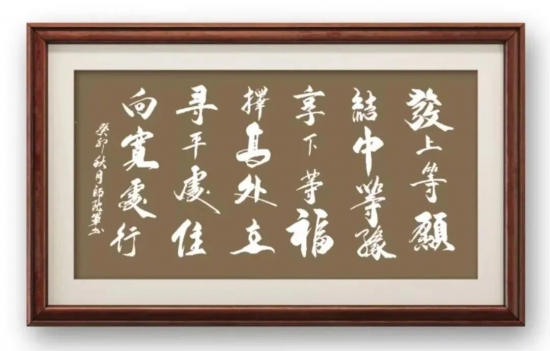 發上等願
結中等緣
享下等福
擇高处立
尋平處住
向寬處行
癸卯秋月书